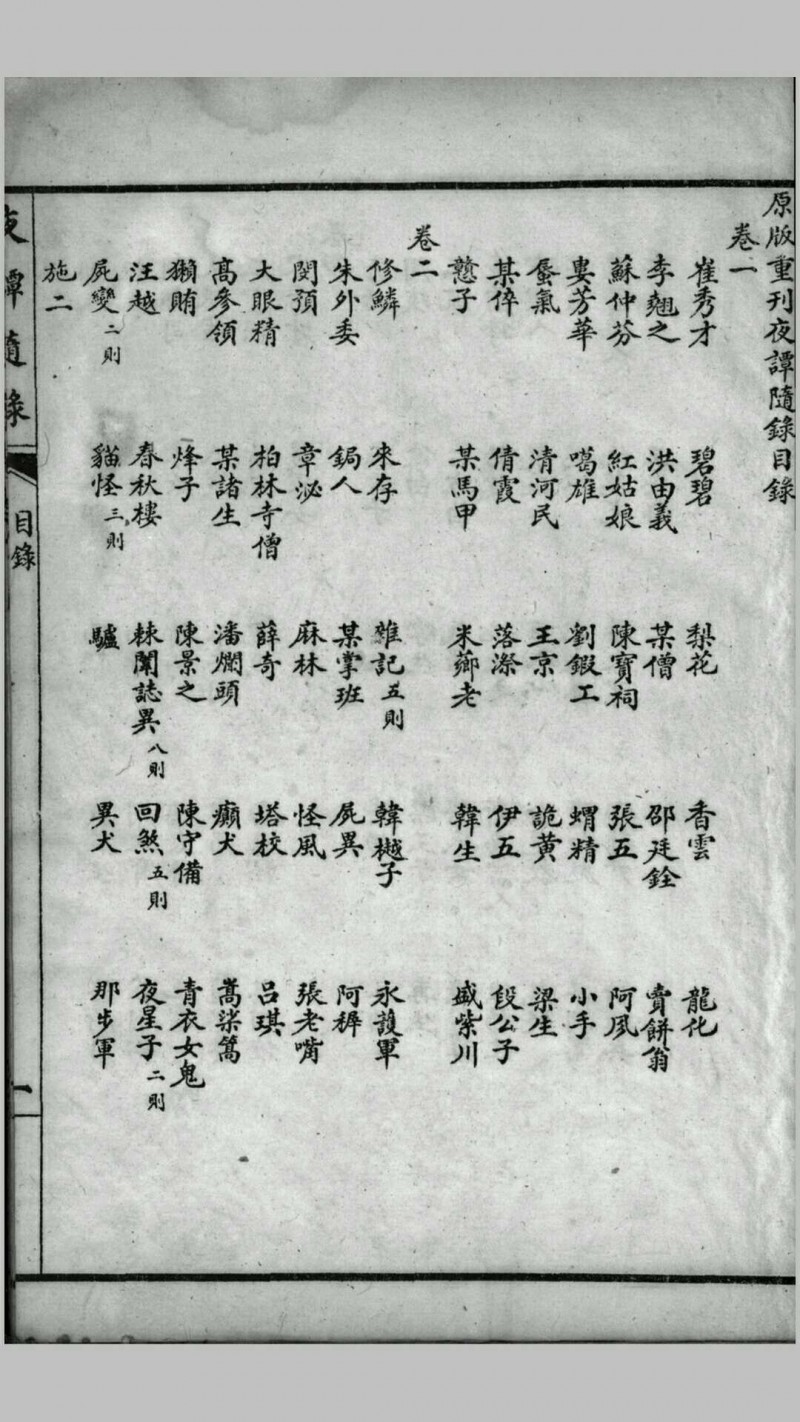 原版重刊夜譚隨錄目錄
卷一
崔秀才 碧碧 梨花 香雲 龍化
李翹之 洪由義 某僧 邵廷銓 賣餅翁
蘇仲芬 紅姑娘 陳寶祠 張五 阿鳳
婁芳華 噶雄 劉鍜工 蝟精 小手
蜃氣 清河民 王京 詭黃 梁生
某倅 倩霞 落漈 伊五 段公子
戇子 某馬甲 米薌老 韓生 盛紫川
卷二
修鱗 來存 雜記五則 韓樾子 永護軍
朱外委 鋦人 某掌班 屍異 阿稺
閔預 章泌 麻林 怪風 張老嘴
大眼精 柏林寺僧 薛奇 塔校 呂琪
高參領 某諸生 潘爛頭 癲犬 嵩梁篙
獺賄 烽子 陳景之 陳守備 青衣女鬼
汪越 春秋樓 棘闈誌異八則 回煞五則 夜星子二則
屍變二則 貓怪三則 驢 異犬 那步軍
施二
夜譚隨錄 目錄 一